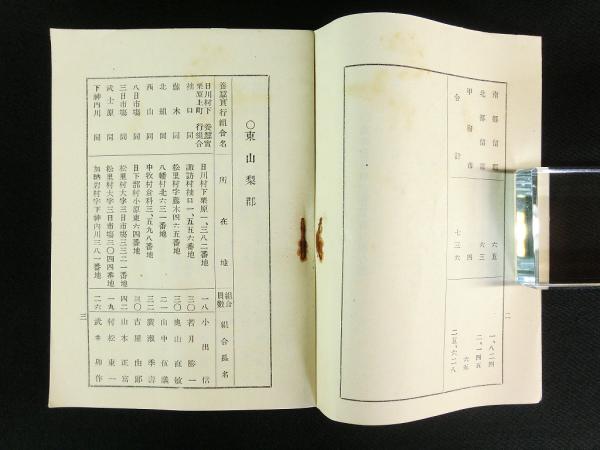 南都留郡 六五 一、八二四
北都留郡 六三 二、一四五
甲府市 四 六五
合計 七三六 二五、六二八
二
〇東山梨郡
養蚕実行組合名 所在地 組合員数 組合長名
日川村下栗原上町養蚕実行組合 日川村下栗原一、三八二番地 一八 小出信
同 諏訪村 一、五五六番地 三〇 若月勝一
藤木同 松里村字藤木四六五番地 三〇 奥山直敏
北組同 八幡村北六三一番地 二一 山中伍議
西山同 中牧村倉科三、五九八番地 三二 廣瀬季壽
八日市場同 日下部村小原東六四番地 三〇 古屋由郎
三日市場同 松里村大字三日市場三三二一番地 四二 山本正富
武士原同 松里村大字三日市場三〇四四番地 一九 村松東一
下神内川同 加納岩村字下神内川三八一番地 二六 武井卯作
三